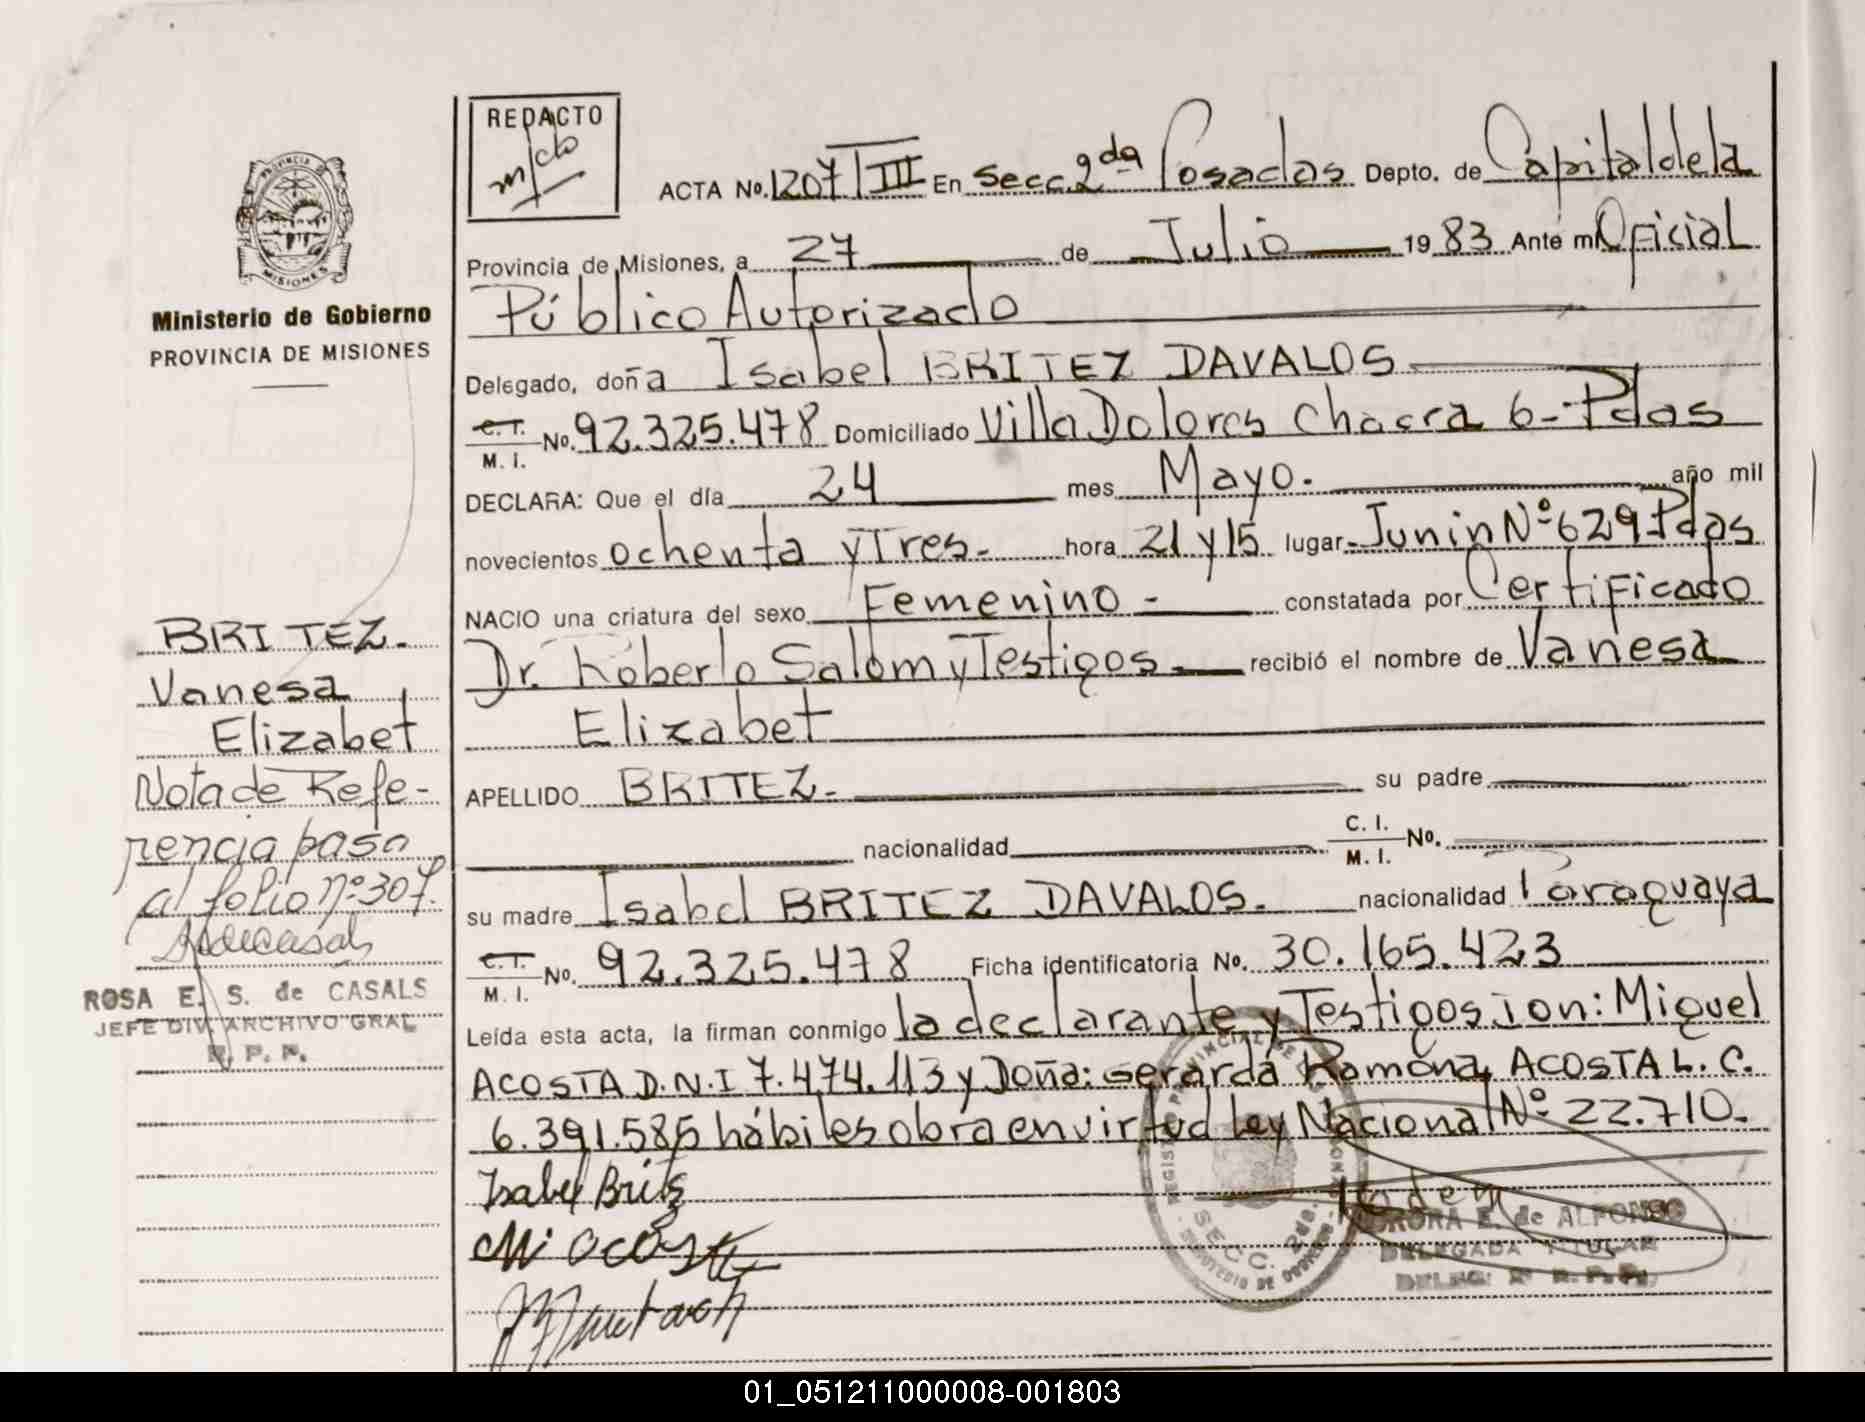 REDACTO
ACTA No. 1207 III En Secc. 2da Posadas Depto. de Capital de la
Provincia de Misiones, a 27 de Julio 1983 Ante mi Oficial
Público Autorizado
Delegado, doña Isabel BRITEZ DAVALOS
C. I. M. I. No. 92.325.478 Domiciliado Villa Dolores Chacra 6- Pdas
DECLARA: Que el día 24 mes Mayo. año mil
novecientos ochenta y Tres- hora 21 y 15 lugar Junin Nº 629 Pdas
NACIO una criatura del sexo Femenino - constatada por Certificado
Dr. Roberto Salom y Testigos recibió el nombre de Vanesa
Elizabet
APELLIDO BRITEZ. su padre
nacionalidad C. I. M. I. No.
su madre Isabel BRITEZ DAVALOS. nacionalidad Paraguaya
C. I. M. I. No. 92.325.478 Ficha identificatoria No. 30.165.423
Leída esta acta, la firman conmigo la declarante y Testigos son: Miguel
ACOSTA D.N.I 7.474.113 y Doña: Gerarda Ramona ACOSTA L. C.
6.391.585 hábiles obra en virtud Ley Nacional Nº 22.710.
Isabel Britez
Mi Acosta
PROVINCIA DE
MISIONES
Ministerio de Gobierno
PROVINCIA DE MISIONES
BRITEZ.
Vanesa
Elizabet
Nota de Refe-
rencia paso
al folio nº 307.
ROSA E. S. de CASALS
JEFE DIV. ARCHIVO GRAL
R. P. P.
SECC. 2da.
AURORA E. de ALFONSO
DELEGADA TITULAR
01_051211000008-001803